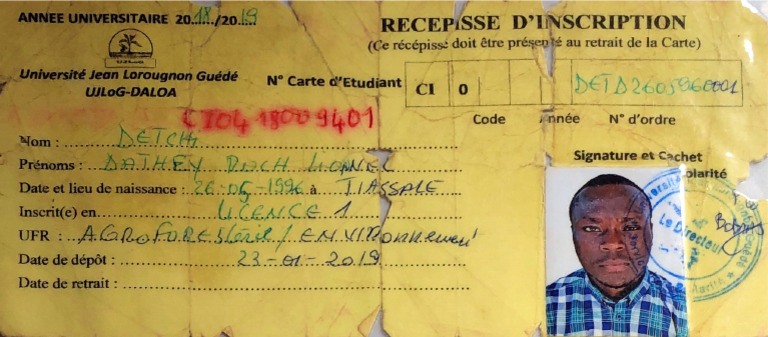 ANNEE UNIVERSITAIRE 2018/2019
RECEPISSE D'INSCRIPTION
(Ce récépissé doit être présenté au retrait de la Carte)
UJLoG
Université Jean Lorougnon Guédé
UJLoG-DALOA
N° Carte d'Etudiant
CI 0 DETD2605960001
Code Année N° d'ordre
CI0418009401
Signature et Cachet
Scolarité
Nom : DETCHI
Prénoms : DATHEY ROCH LIONEL
Date et lieu de naissance : 26-05-1996 à TIASSALE
Inscrit(e) en LICENCE 1
UFR : AGROFORESterie / ENVIRONNement
Date de dépôt : 23-01-2019
Date de retrait :
Le Directeur